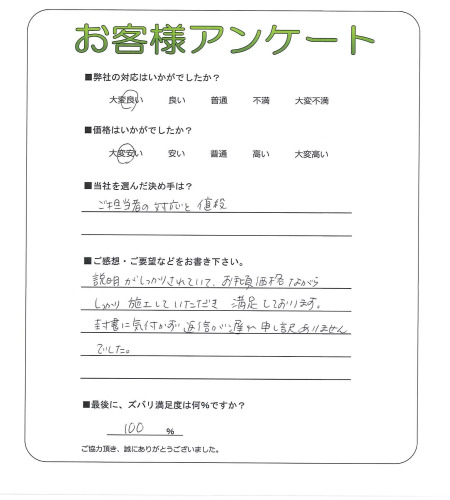 お客様アンケート
■弊社の対応はいかがでしたか？
大変良い 良い 普通 不満 大変不満
■価格はいかがでしたか？
大変安い 安い 普通 高い 大変高い
■当社を選んだ決め手は？
ご担当者の対応と値段
■ご感想・ご要望などをお書き下さい。
説明がしっかりされていて、お手頃価格ながら
しっかり施工していただき満足しております。
封書に気付かず返信が遅れ申し訳ありません
でした。
■最後に、ズバリ満足度は何%ですか？
100 %
ご協力頂き、誠にありがとうございました。